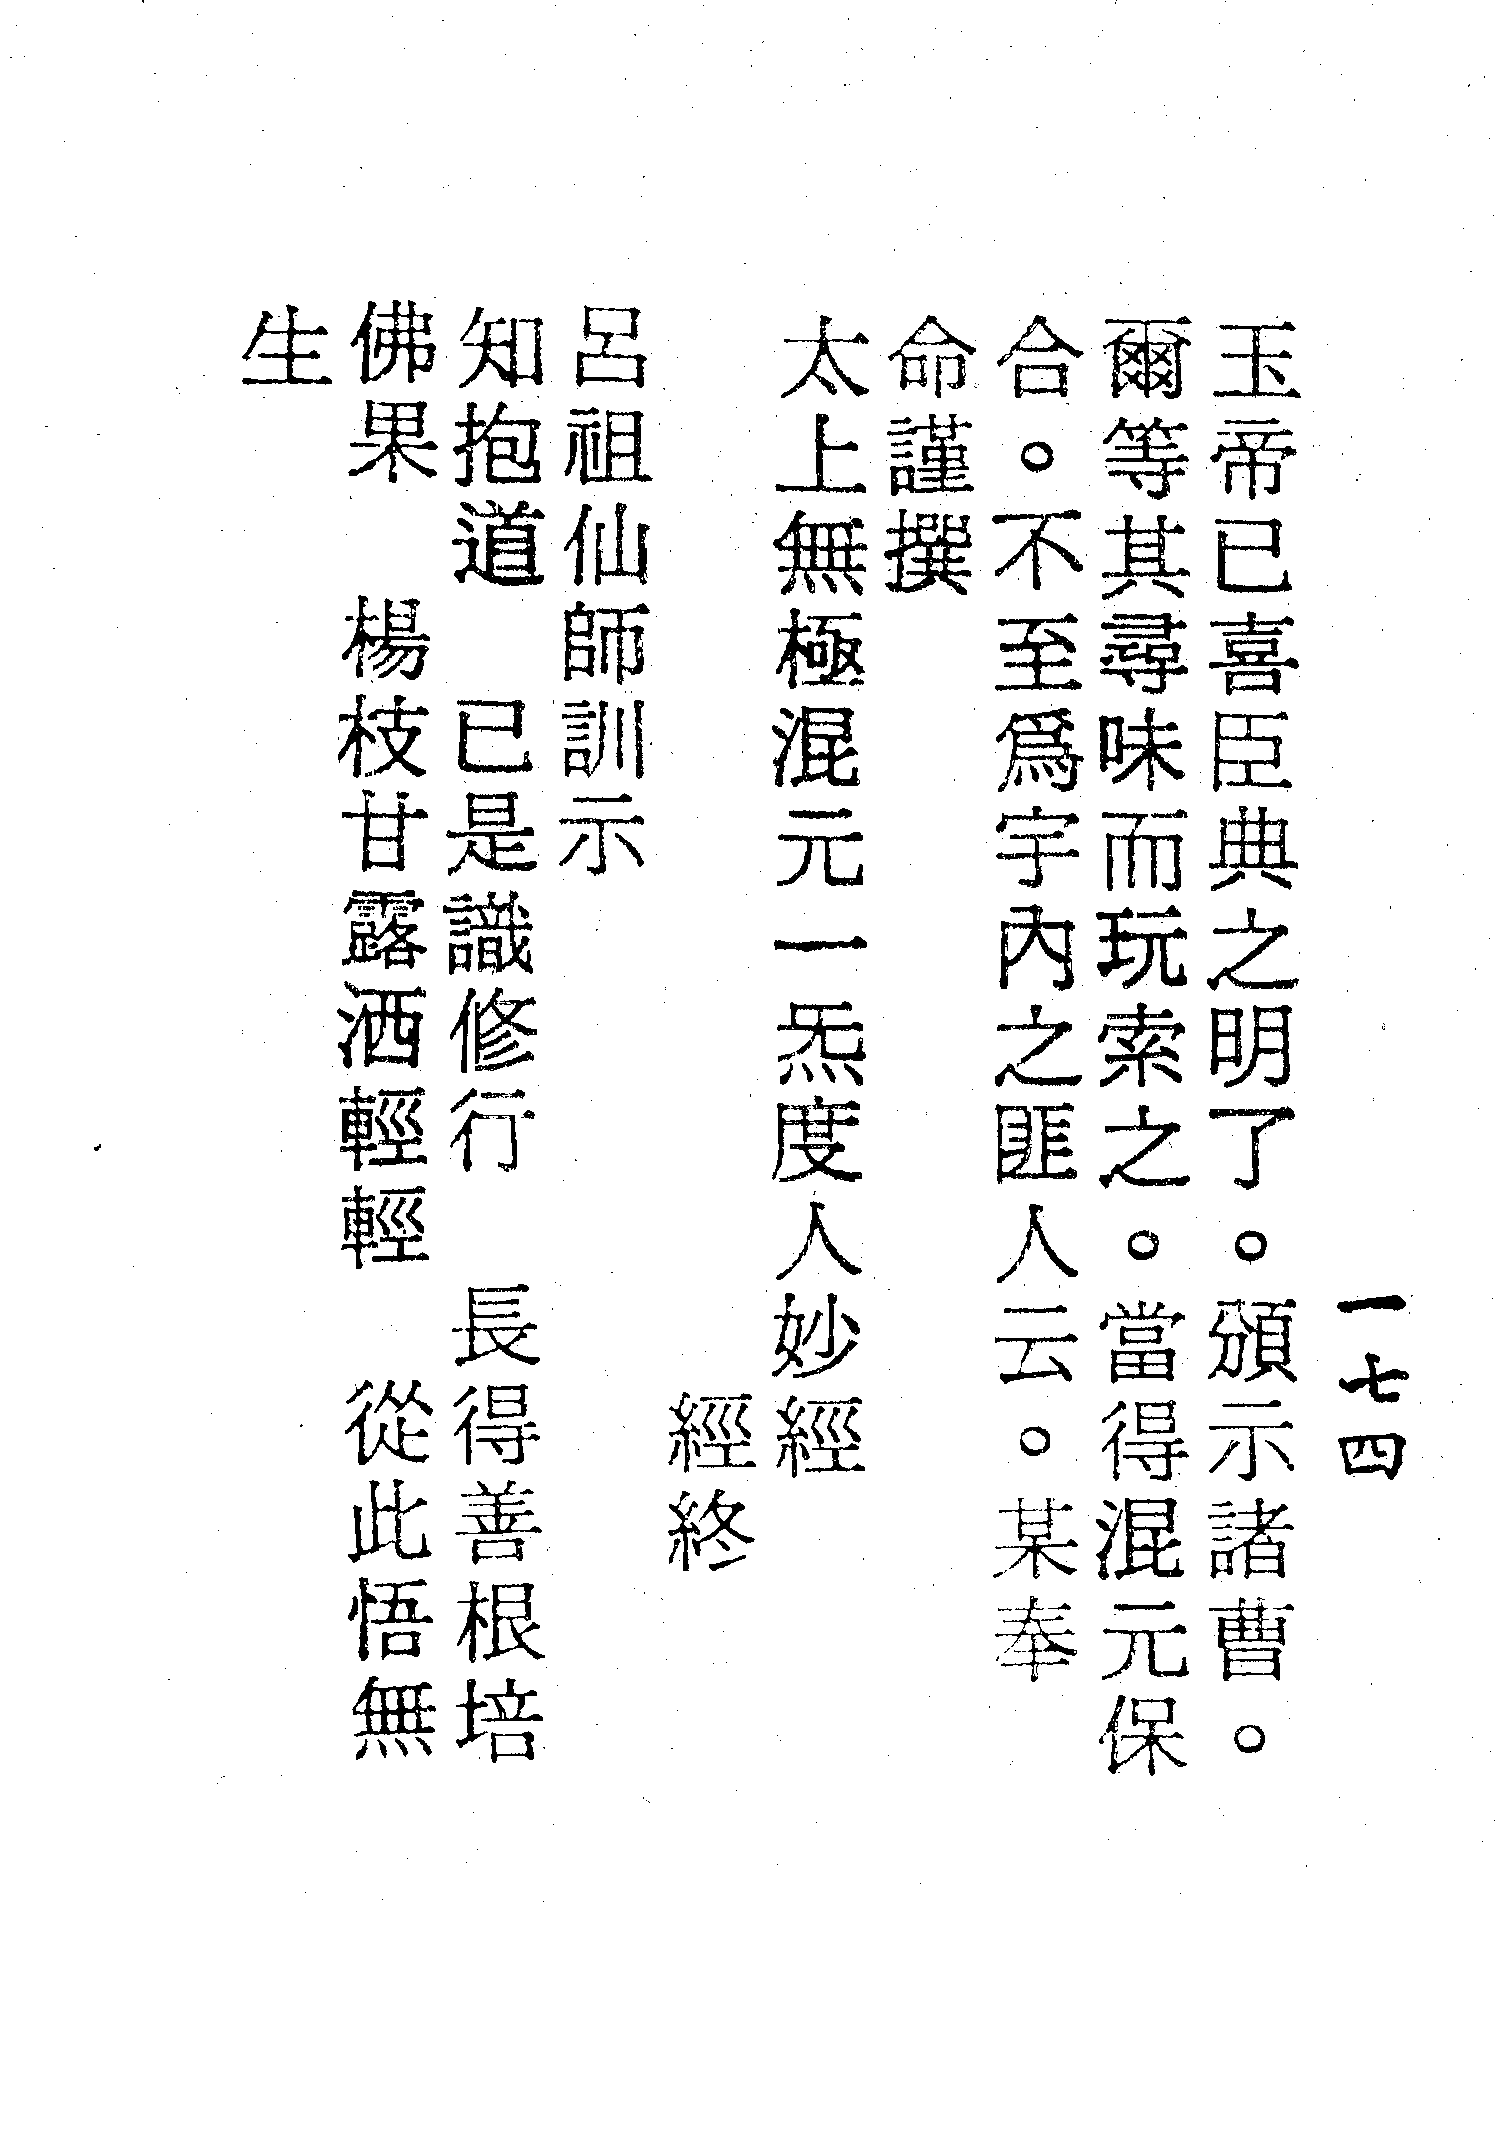 一七四
玉帝已喜臣典之明了。頒示諸曹。
爾等其尋味而玩索之。當得混元保
合。不至爲宇內之匪人云。某奉
命謹撰
太上無極混元一炁度人妙經
經終
呂祖仙師訓示
知抱道　已是識修行　長得善根培
佛果　楊枝甘露洒輕輕　從此悟無
生